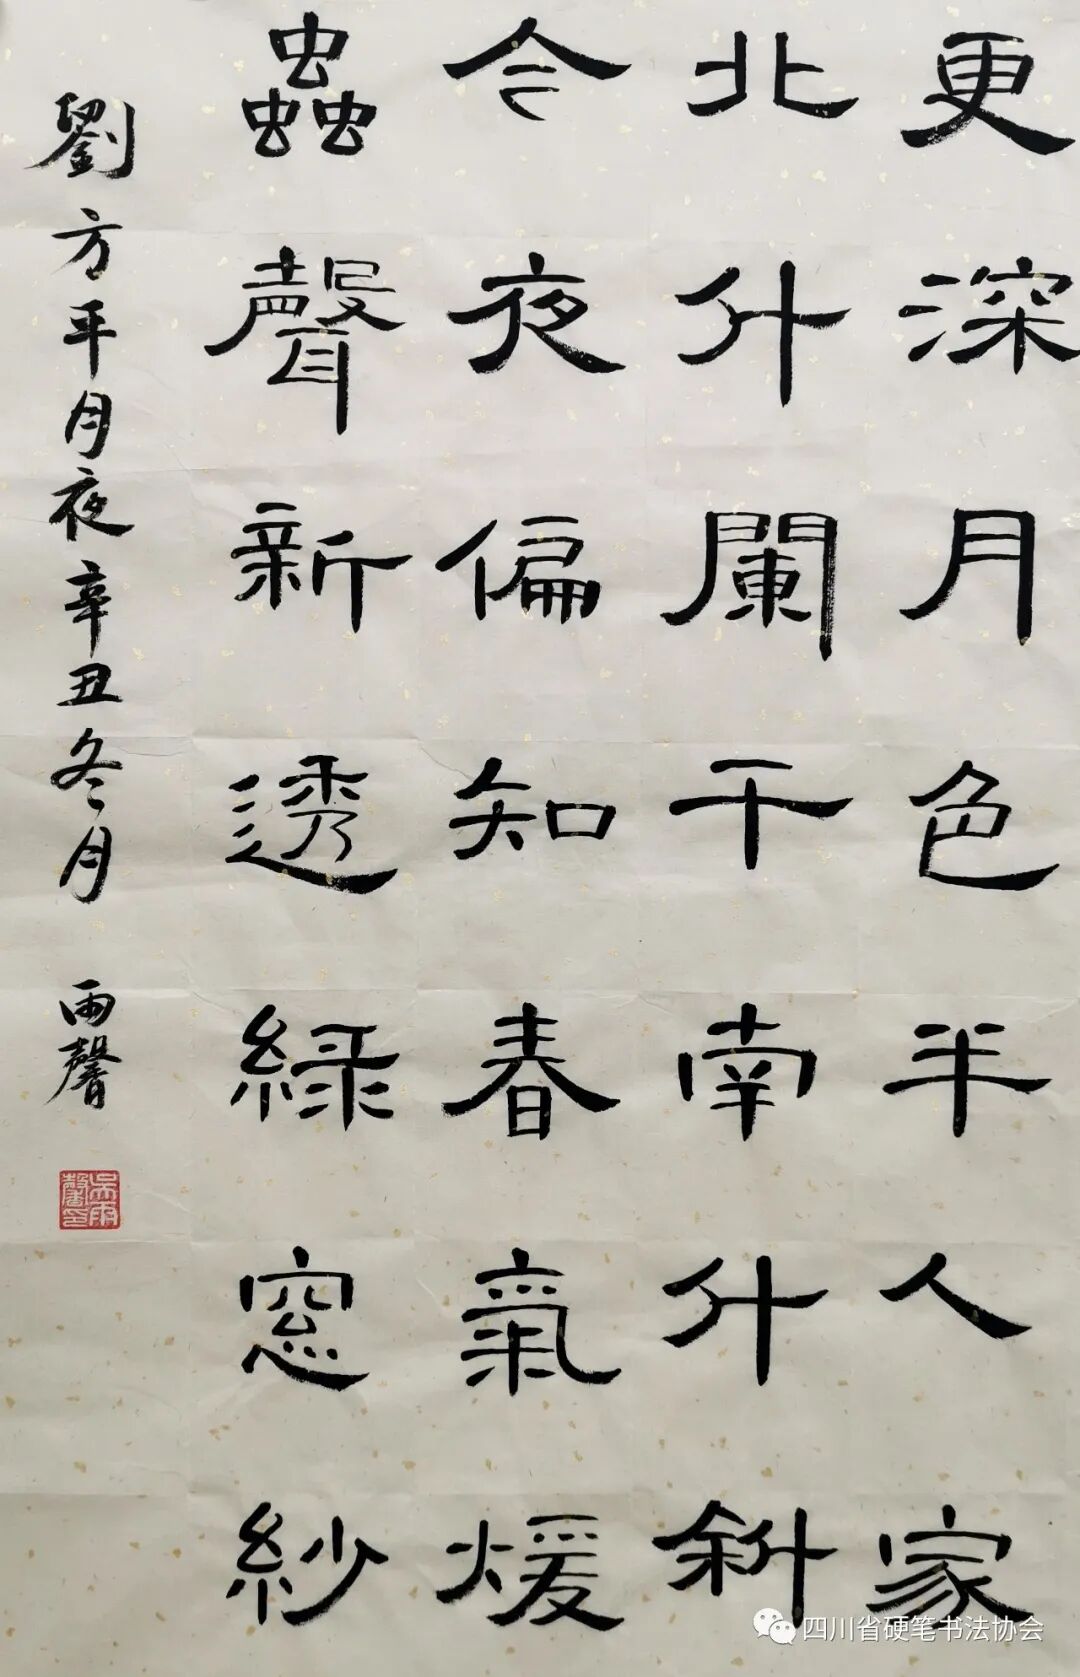 更深月色半人家
北斗闌干南斗斜
今夜偏知春氣煖
蟲聲新透綠窓紗
劉方平月夜辛丑冬月 雨馨
吳雨馨印
四川省硬笔书法协会